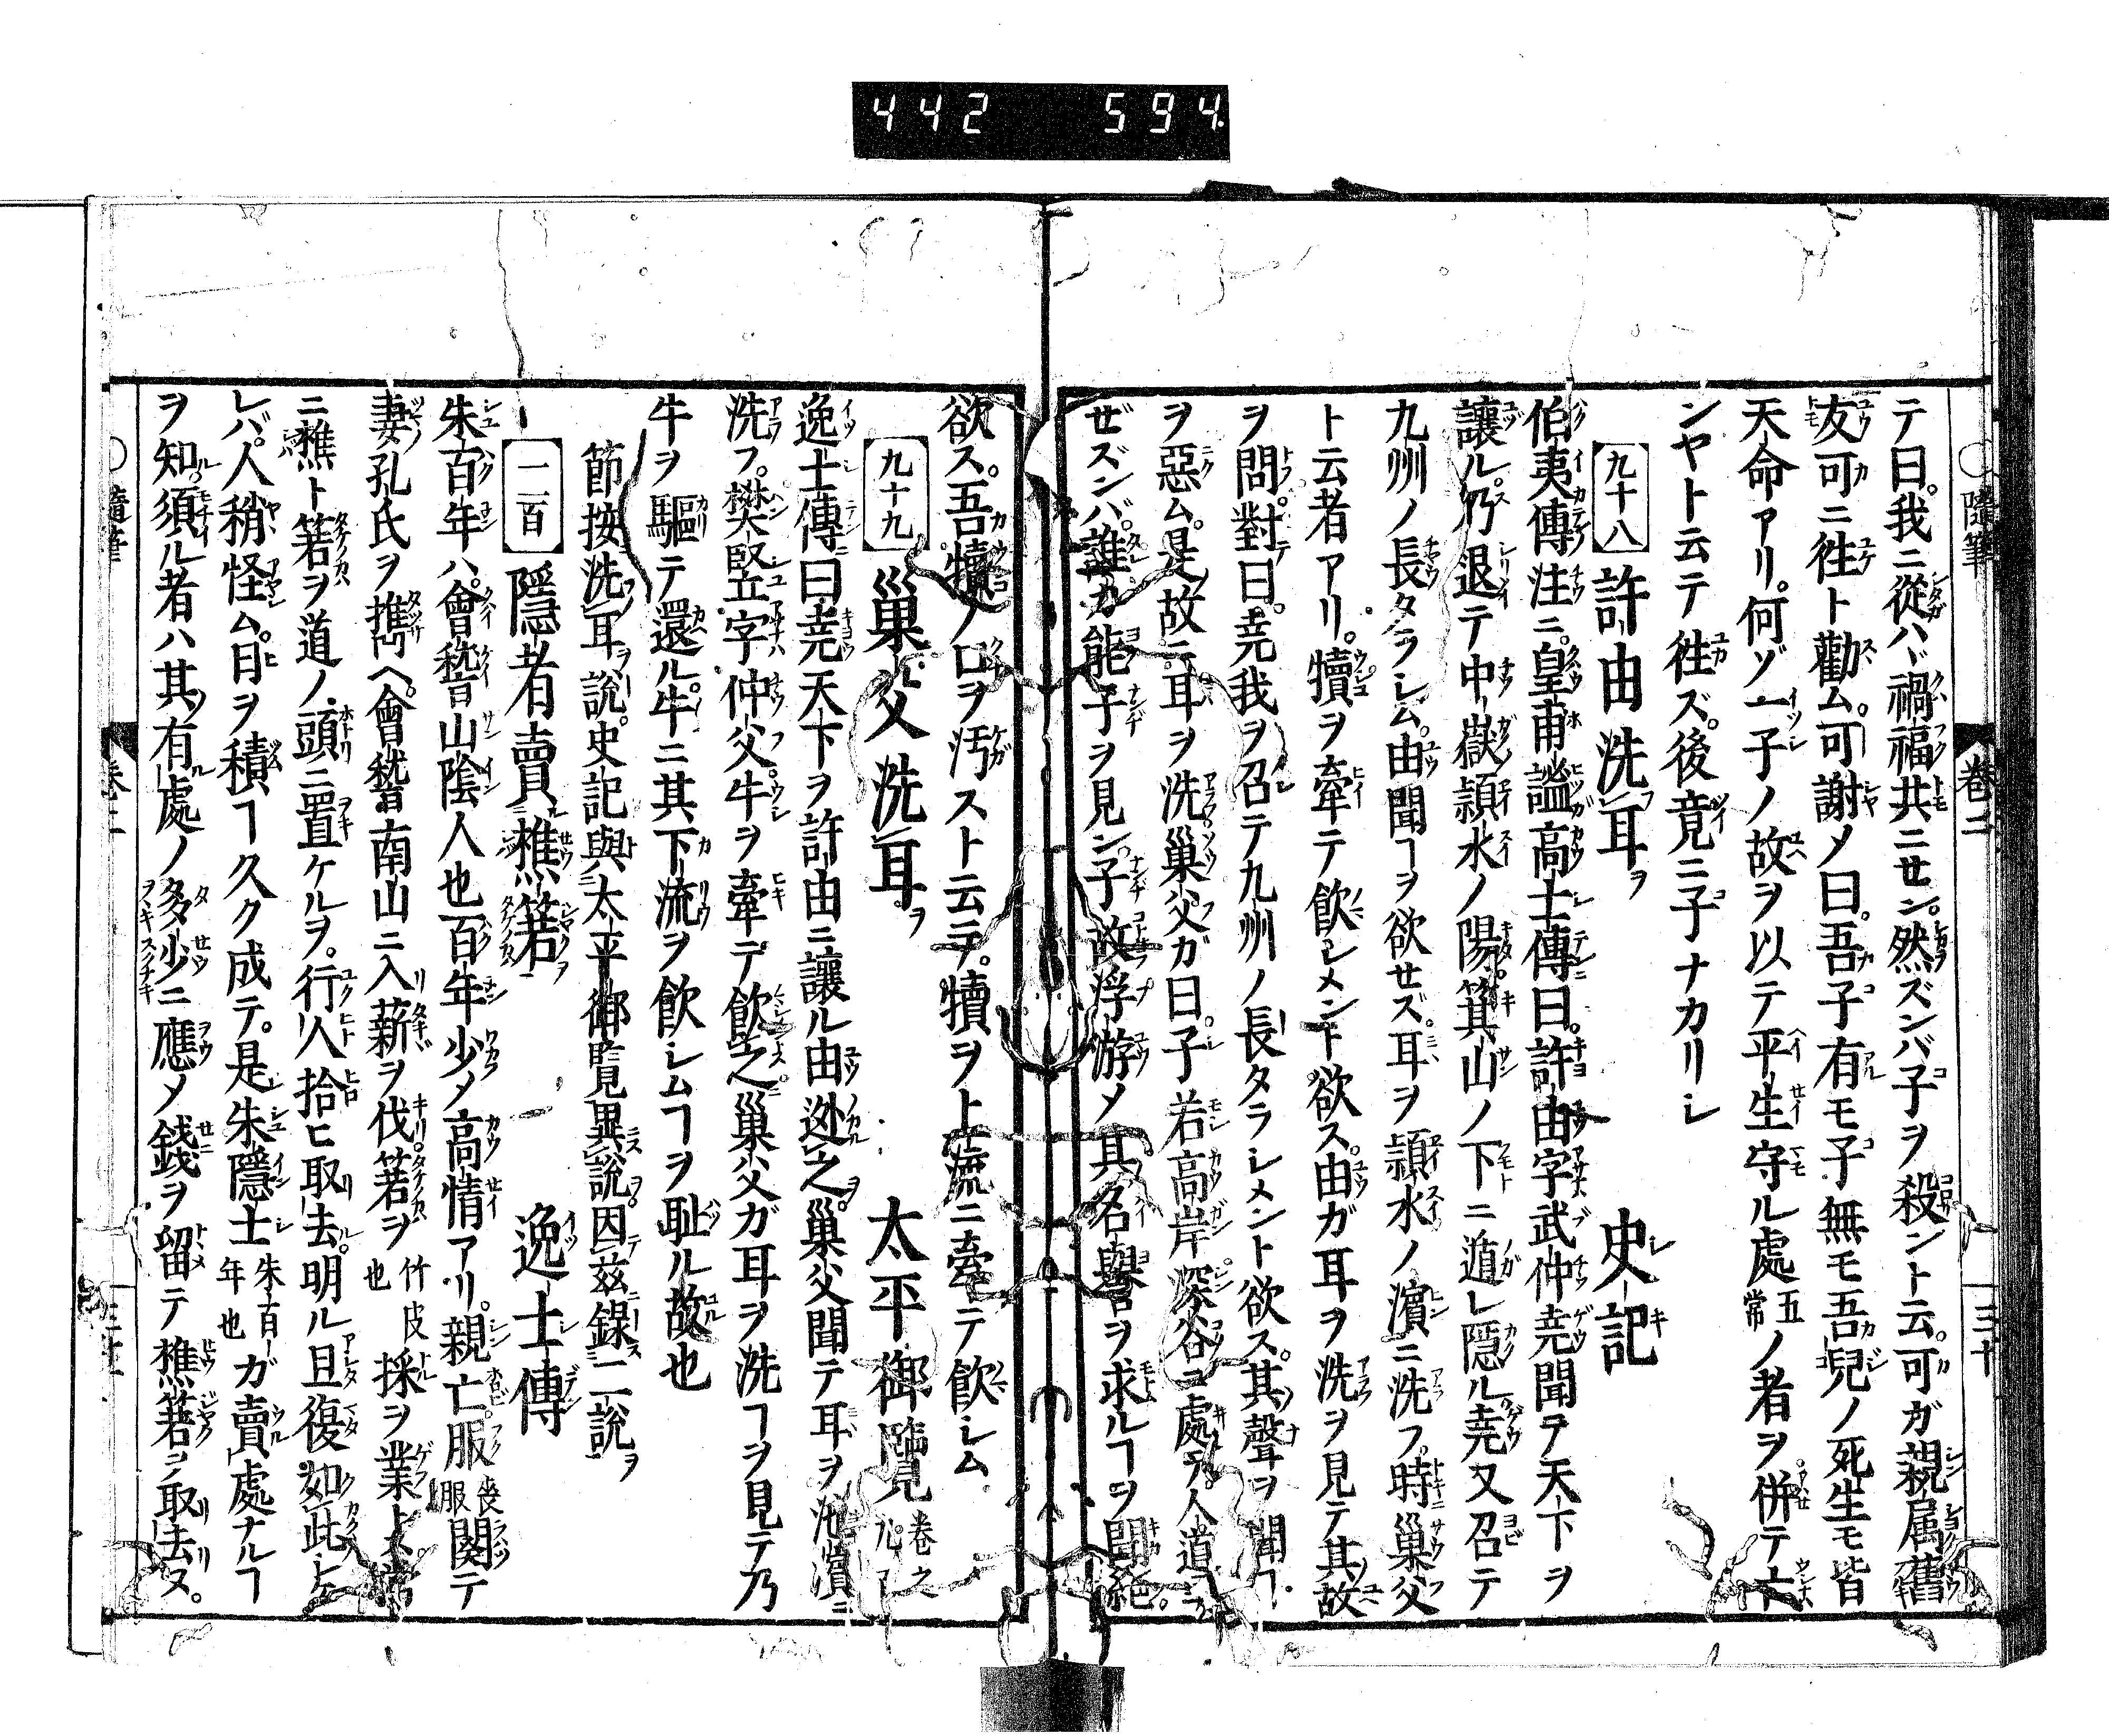 442 594
○隨筆 卷二 三十
テ曰。我ニ從ハヾ禍福共ニセン。然ズンバ子ヲ殺ント云。可ガ親属舊
友可ニ徃ト勸ム。可謝メ曰。吾子有モ子無モ吾兒ノ死生モ皆
天命アリ。何ゾ一子ノ故ヲ以テ平生守ル處五常ノ者ヲ併テ亡
ンヤト云テ徃ズ。後竟ニ子ナカリシ
九十八 許由洗耳ヲ 史記
伯夷傳注ニ。皇甫謐高士傳曰。許由字武仲堯聞ヲ天下ヲ
讓ル。乃退テ中嶽頴水ノ陽箕山ノ下ニ遁レ隱ル堯又召テ
九州ノ長タラシム。由聞ヿヲ欲セズ。耳ヲ頴水ノ濱ニ洗フ。時巢父
ト云者アリ。犢ヲ牽テ飮シメント欲ス。由ガ耳ヲ洗ヲ見テ其故
ヲ問。對曰。堯我ヲ召テ九州ノ長タラシメント欲ス。其聲ヲ聞ヿ
ヲ惡ム。是故ニ耳ヲ洗。巢父ガ曰。子若高岸深谷ニ處テ。人道
ゼズンバ。誰カ能子ヲ見ン。子故浮游メ其名譽ヲ求ルヿヲ聞絕。
欲ス。吾犢ノ口ヲ汚スト云テ。犢ヲ上流ニ牽テ飮シム
九十九 巢父洗耳ヲ 太平御覽卷之
逸士傳曰堯天下ヲ許由ニ讓ル由逊之巢父聞テ耳ヲ池濱ニ
洗フ。樊竪字仲父。牛ヲ牽テ飮之。巢父ガ耳ヲ洗ヿヲ見テ乃
牛ヲ驅テ還ル牛ニ其下流ヲ飮シムヿヲ耻ル故也
節按洗耳ヲ說。史記與太平御覽異說因茲錄二說ヲ
一百 隱者賣樵箬ヲ 逸士傳
朱百年ハ。會稽山陰人也百年少メ高情アリ。親亡服喪服闋テ
妻孔氏ヲ携ヘ。會稽南山ニ入薪ヲ伐箬ヲ竹皮也採ヲ業トス常
ニ樵ト箬ヲ道ノ頭ニ置ケルヲ。行人拾ヒ取去。明ル且復如此ト
レバ。人稍怪ム。日ヲ積ヿ久ク成テ。是朱隱士朱百年也ガ賣處ナルヿ
ヲ知。須ル者ハ其有處ノ多少ニ應メ錢ヲ留テ樵箬ヲ取去ヌ。
○隨筆 卷二